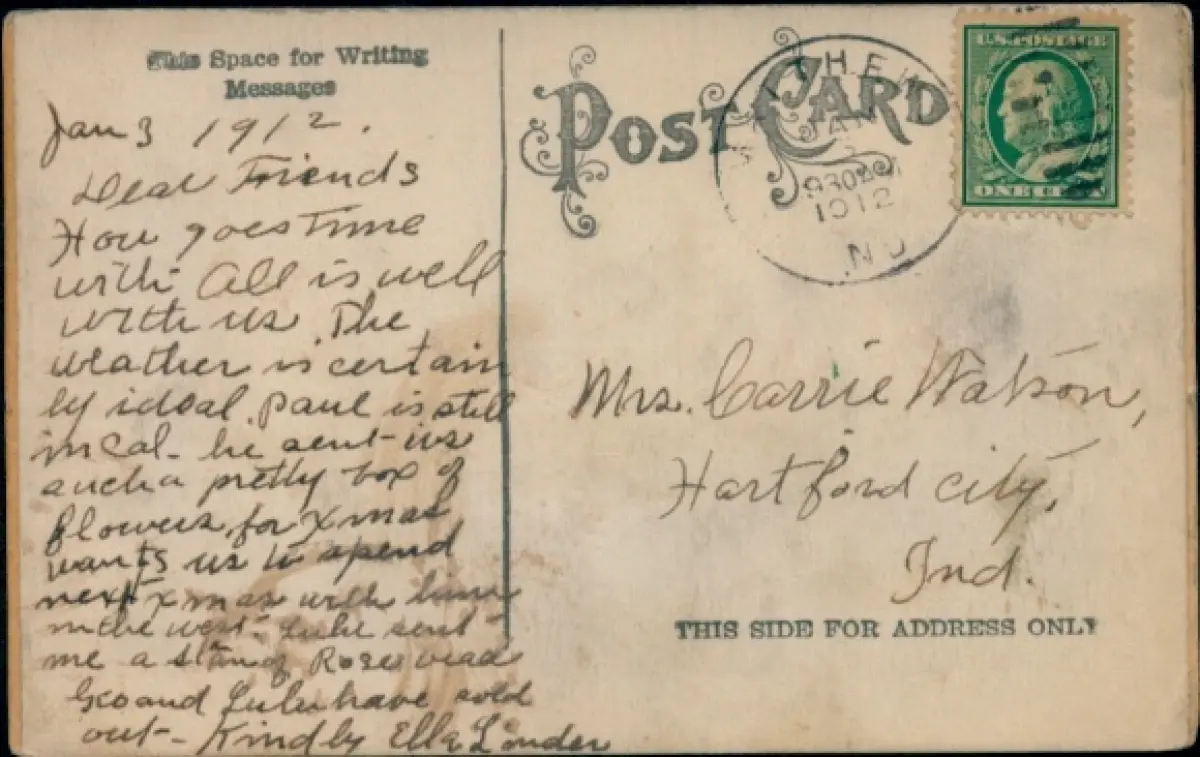 This Space for Writing
Messages
Jan 3 1912.
Dear Friends
How goes Time
with All is well
with us. The
weather is certain
ly ideal. Paul is still
in Cal- he sent us
such a pretty box of
flowers, for Xmas
wants us to spend
next xmas with him
in the west- Lulu sent
me a of Rose
Geo and Lulu have sold
out- Kindly Ella Linder
POST CARD
JAN
930 AM
1912
U.S. POSTAGE
ONE CENT
Mrs. Carrie Watson,
Hartford city,
Ind.
THIS SIDE FOR ADDRESS ONLY